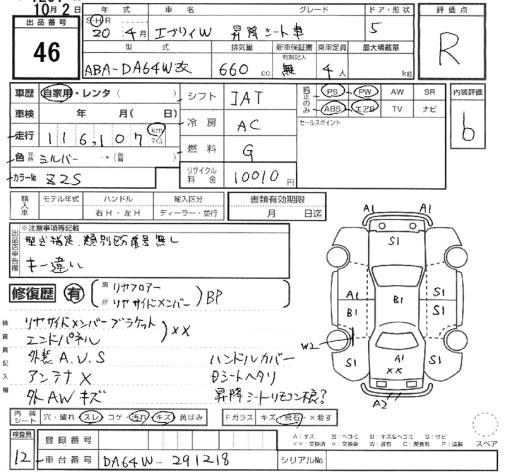 10月2日
年式 車名 グレード ドア・形状 評価点
出品番号 46
S・H・R 20年4月 エブリイW 昇降シート車 5 R
型式 排気量 新車保証書 有無記入 乗車定員 最大積載量
ABA-DA64W改 660cc 無 4人 kg
車歴 自家用・レンタ( ) シフト IAT 純正のみ PS PW AW SR 内装評価
車検 年 月( 日) 冷房 AC ABS エアB TV ナビ b
走行 116,107 km マイル 燃料 G セールスポイント
色 シルバー ・( 替 )
カラーNo Z2S リサイクル料金 10010円
輸入車 モデル年式 ハンドル 右H・左H 輸入区分 ディーラー・並行 書類有効期限 月 日迄
出品店申告欄 ※注意事項等記載
型式指定、類別区分番号無し
キー違い
修復歴 有 箇所 リヤフロアー リヤサイドメンバー BP
検査員記入欄
リヤサイドメンバーブラケット
エンドパネル XX
外装 A.U.S ハンドルカバー
アンテナX Bシートヘタリ
外AWキズ 昇降シートリモコン積?
A1 A1
S1
B1 S1
B1 B1 S1
W2
A1
XX
S1 S1
A2
内装シート 穴・破れ スレ コゲ・汚れ キズ 黄ばみ Fガラス キズ・飛石・X要す
A:キズ B:ヘコミ B:キズ&ヘコミ S:サビ
スペア
検査員 12 登録番号
車台番号 DA64W-291218 シリアルNo